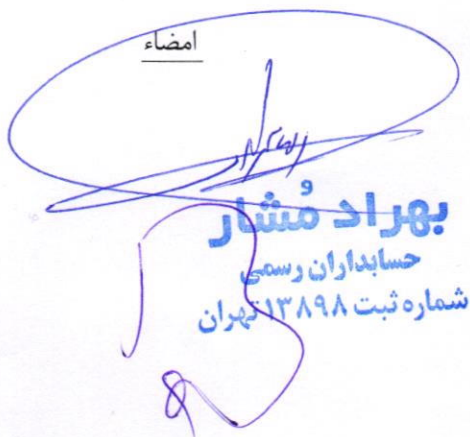 امضاء
بهراد مُشار
حسابداران رسمی
شماره ثبت ۱۳۸۹۸ تهران